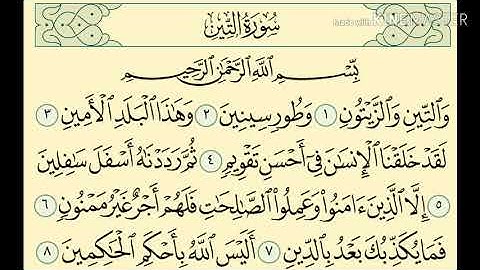 سُورَةُ التِّينِ
made with KINEMASTER
بِسْمِ اللَّهِ الرَّحْمَٰنِ الرَّحِيمِ
وَٱلتِّينِ وَٱلزَّيْتُونِ ١ وَطُورِ سِينِينَ ٢ وَهَٰذَا ٱلْبَلَدِ ٱلْأَمِينِ ٣
لَقَدْ خَلَقْنَا ٱلْإِنسَٰنَ فِىٓ أَحْسَنِ تَقْوِيمٍ ٤ ثُمَّ رَدَدْنَٰهُ أَسْفَلَ سَٰفِلِينَ
٥ إِلَّا ٱلَّذِينَ ءَامَنُوا۟ وَعَمِلُوا۟ ٱلصَّٰلِحَٰتِ فَلَهُمْ أَجْرٌ غَيْرُ مَمْنُونٍ ٦
فَمَا يُكَذِّبُكَ بَعْدُ بِٱلدِّينِ ٧ أَلَيْسَ ٱللَّهُ بِأَحْكَمِ ٱلْحَٰكِمِينَ ٨